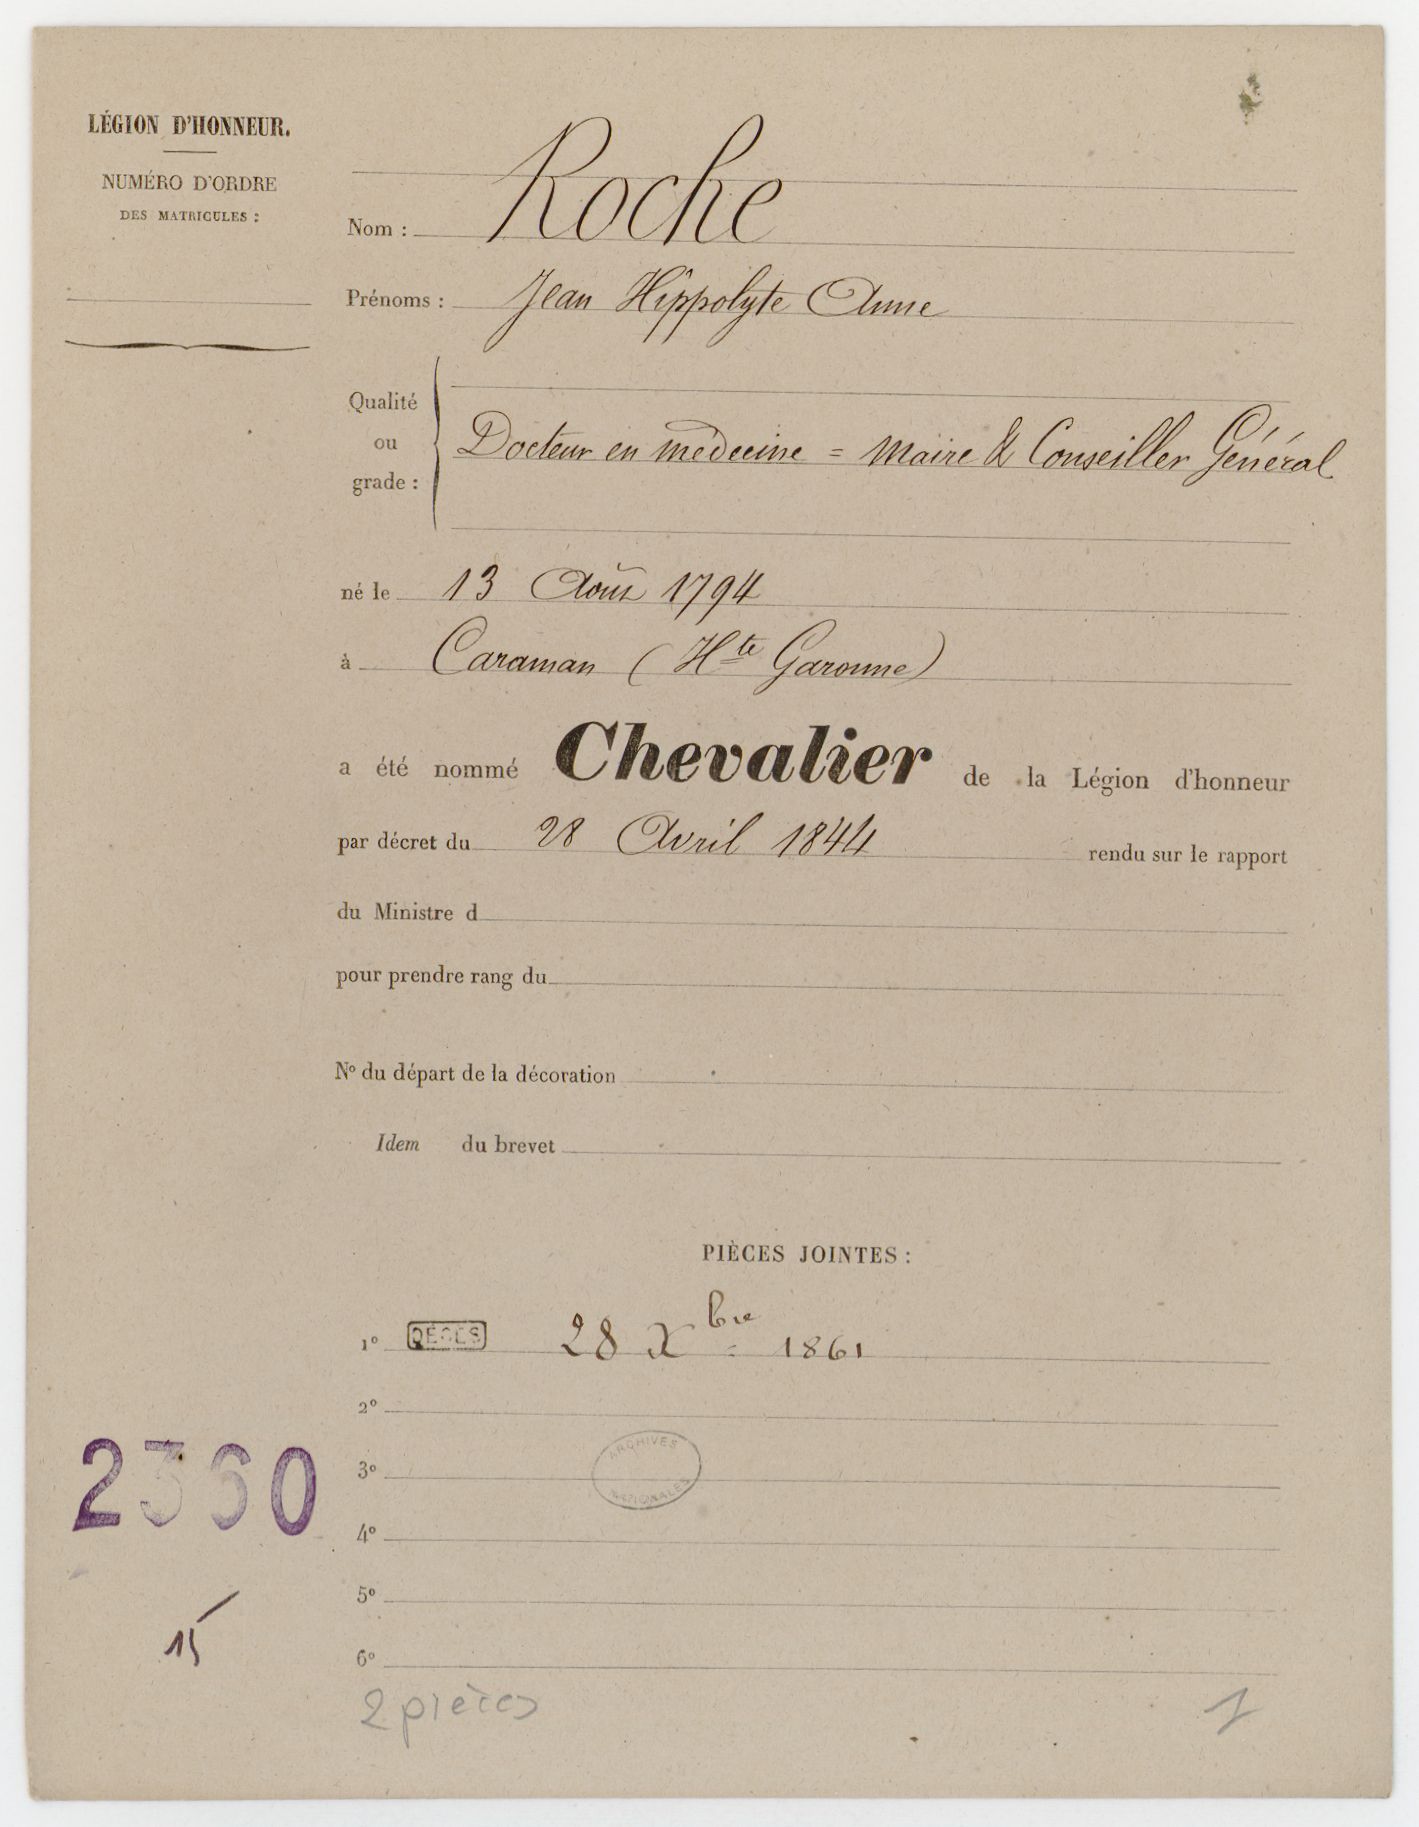 LÉGION D'HONNEUR.
NUMÉRO D'ORDRE
DES MATRICULES :
Nom : Roche
Prénoms : Jean Hippolyte Anne
Qualité
ou
grade :
Docteur en médecine = Maire & Conseiller Général
né le 13 Août 1794
à Caraman (Hte Garonne)
a été nommé Chevalier de la Légion d'honneur
par décret du 28 Avril 1844 rendu sur le rapport
du Ministre d
pour prendre rang du
N° du départ de la décoration
Idem du brevet
PIÈCES JOINTES :
1° DÉCÈS 28 Xbre 1861
2°
3°
ARCHIVES
NATIONALES
4°
5°
6°
2360
15
2 pièces
1